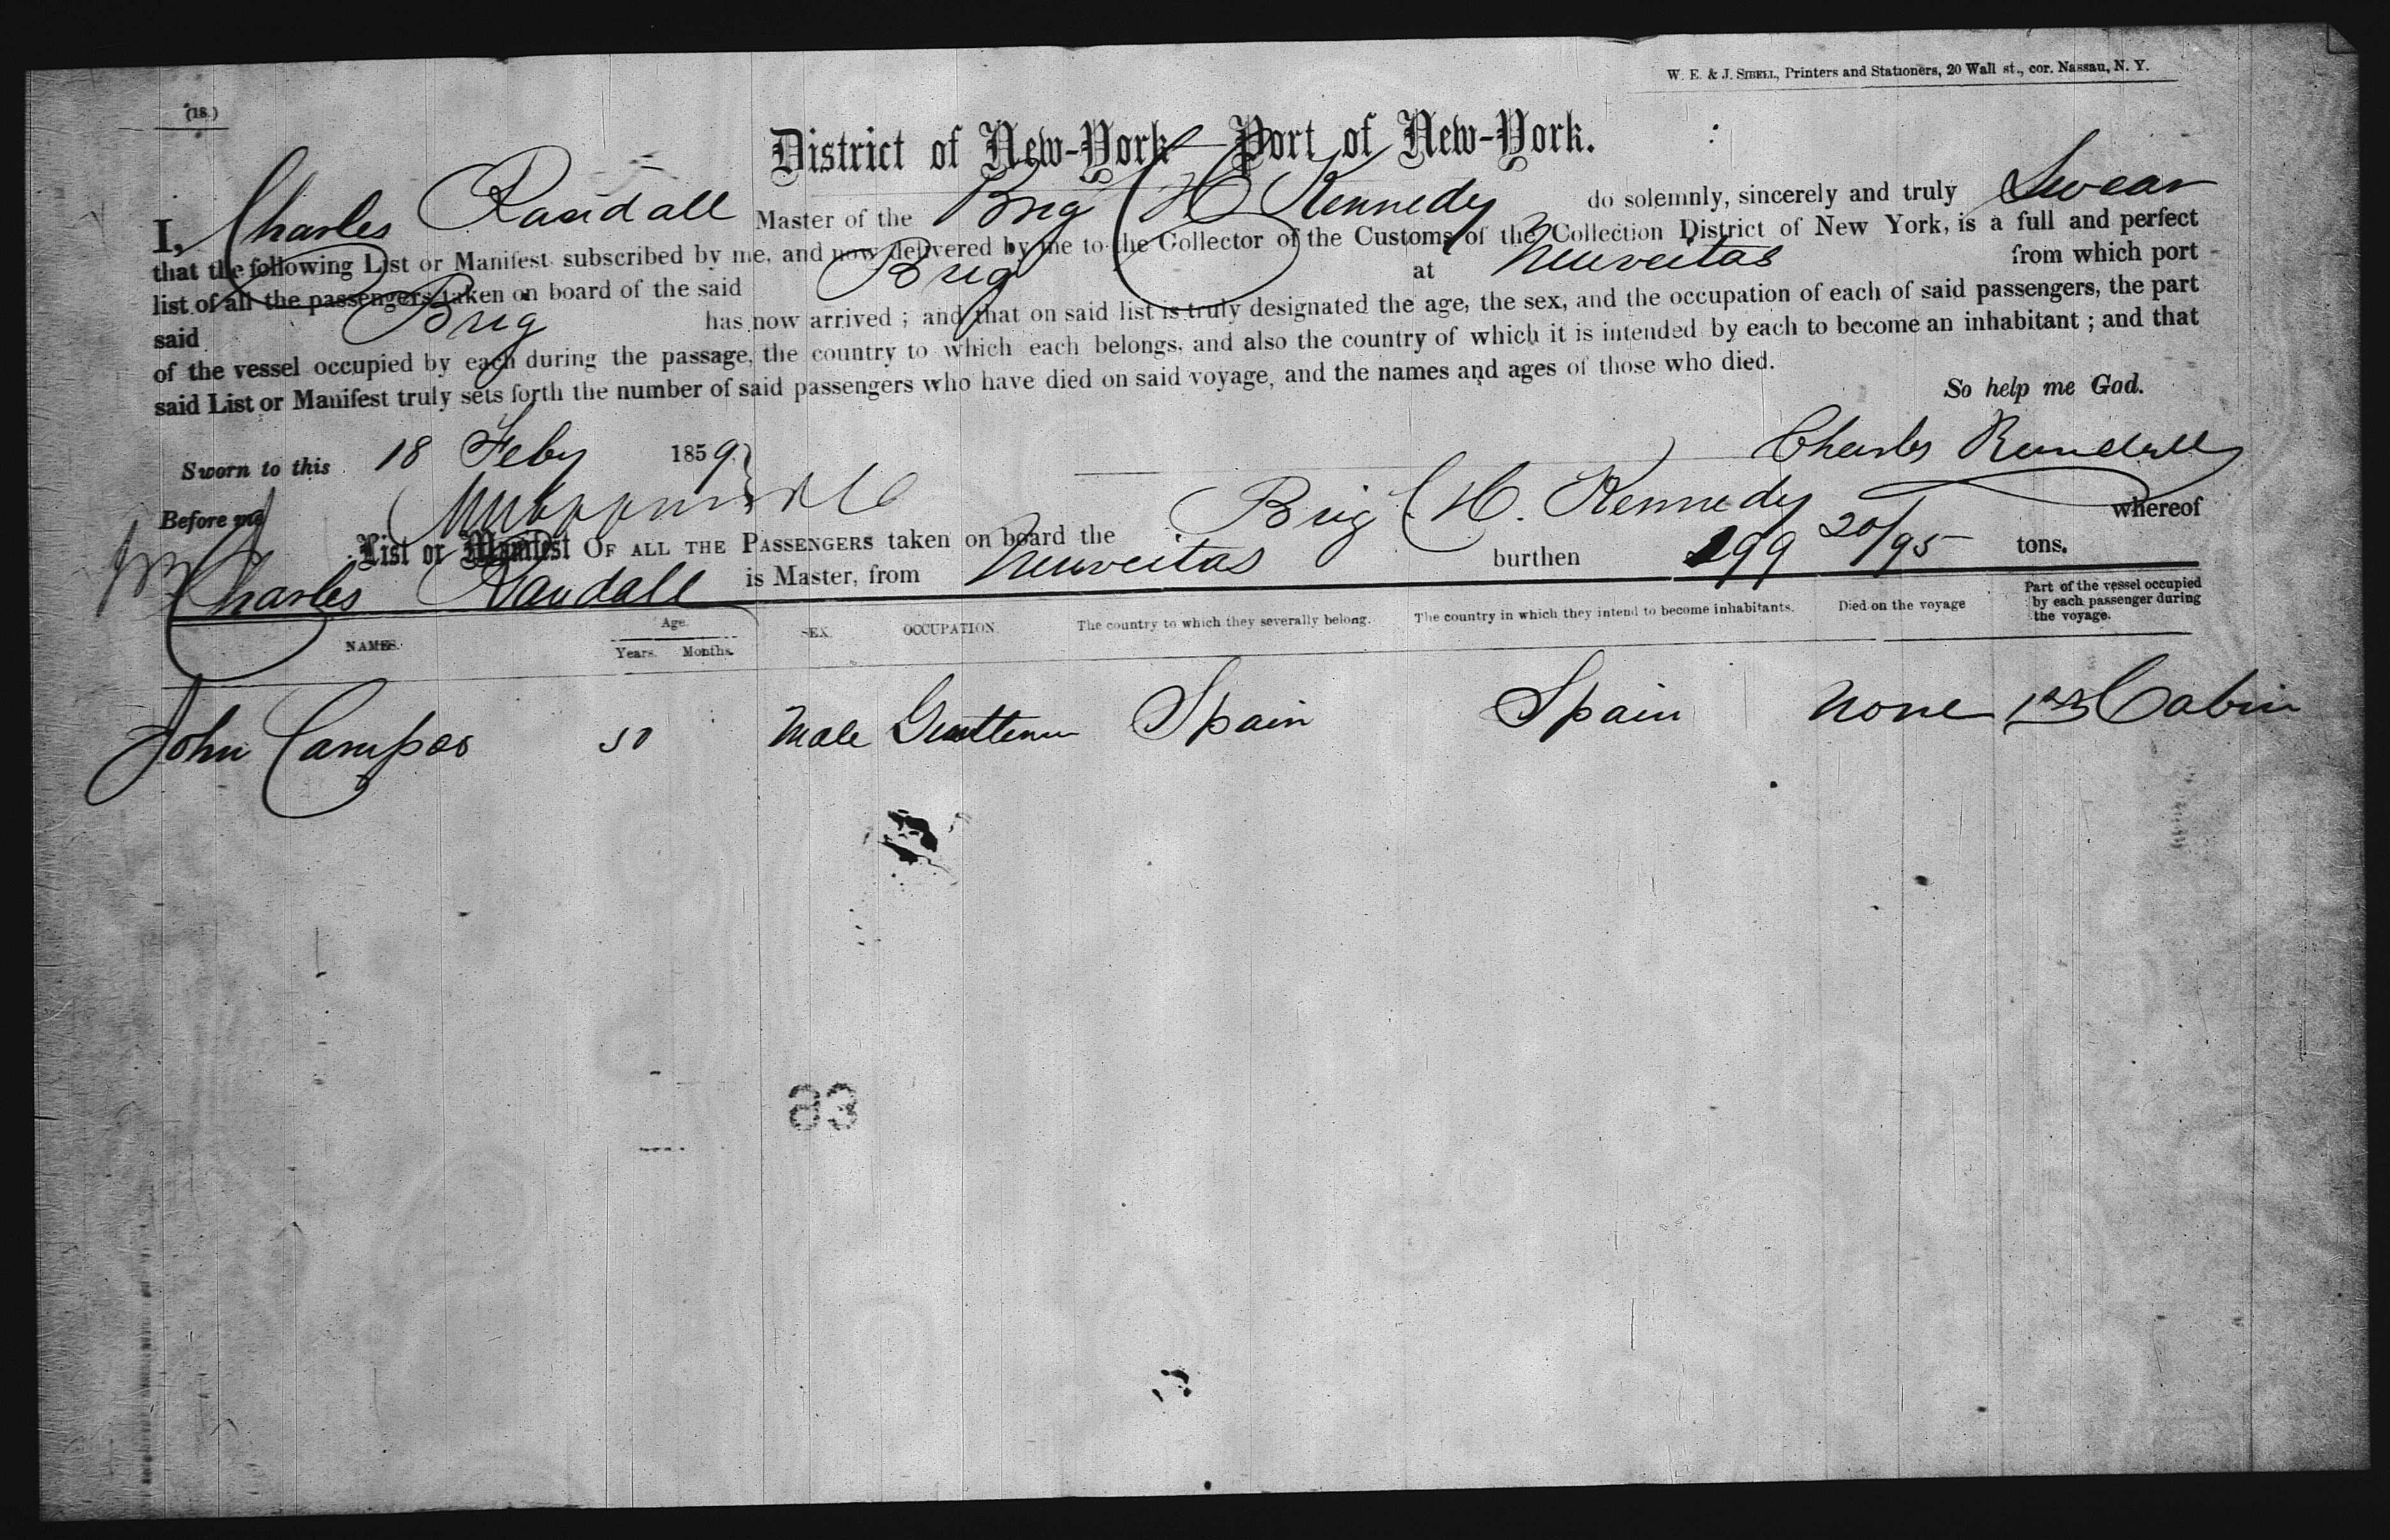 W. E. & J. SIBELL, Printers and Stationers, 20 Wall st., cor. Nassau, N. Y.
(18.)
District of New-York—Port of New-York.
I, Charles Randall Master of the Brig C H Kennedy do solemnly, sincerely and truly Swear
that the following List or Manifest subscribed by me, and now delivered by me to the Collector of the Customs of the Collection District of New York, is a full and perfect
list of all the passengers taken on board of the said Brig at Neuveitas from which port
said Brig has now arrived ; and that on said list is truly designated the age, the sex, and the occupation of each of said passengers, the part
of the vessel occupied by each during the passage, the country to which each belongs, and also the country of which it is intended by each to become an inhabitant ; and that
said List or Manifest truly sets forth the number of said passengers who have died on said voyage, and the names and ages of those who died.
So help me God.
Sworn to this 18 Feby 1859
Charles Randall
Before me
List or Manifest OF ALL THE PASSENGERS taken on board the Brig C H. Kennedy whereof
Charles Randall is Master, from Neuveitas burthen 299 20/95 tons.
NAMES. Age. Years. Months. SEX. OCCUPATION. The country to which they severally belong. The country in which they intend to become inhabitants. Died on the voyage Part of the vessel occupied by each passenger during the voyage.
John Campos 50 Male Gentleman Spain Spain None 1st Cabin